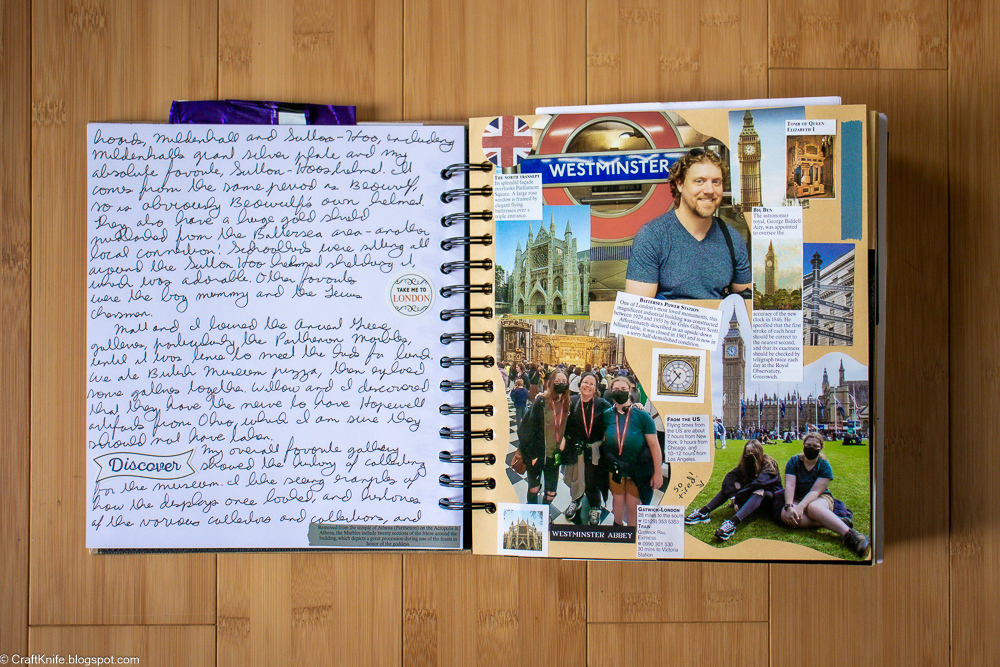 hoards, Mildenhall and Sutton-Hoo, including
Mildenhall's grand silver plate and my
absolute favorite, Sutton-Hoo's helmet. It
comes from the same period as Beowulf,
so is obviously Beowulf's own helmet.
They also have a huge gold shield
mudladed from the Battersea area-another
local connection! Schoolkids were sitting all
around the Sutton Hoo helmet sketching it,
which was adorable. Other favorites
were the bog mummy and the Lewis
chessmen.
TAKE ME TO
LONDON
Matt and I toured the Ancient Greece
galleries, particularly the Parthenon Marbles,
until it was time to meet the kids for lunch.
We ate British Museum pizza, then explored
some galleries together. Willow and I discovered
that they have the nerve to have Hopewell
artifacts from Ohio, which I am sure they
should not have taken.
Discover
My overall favorite gallery
showed the history of collecting
for the museum. I like seeing examples of
how the displays once looked, and histories
of the various collectors and collections, and
Removed from the temple of Athena (Parthenon) on the Acropolis in
Athens, the Marbles include twenty sections of the frieze around the
building, which depicts a great procession during one of the feasts in
honor of the goddess.
WESTMINSTER
THE NORTH TRANSEPT
Its splendid façade
overlooks Parliament
Square. A large rose
window is framed by
elegant flying
buttresses over a
triple entrance.
TOMB OF QUEEN
ELIZABETH I
BIG BEN
The astronomer
royal, George Biddell
Airy, was appointed
to oversee the
accuracy of the new
clock in 1846. He
specified that the first
stroke of each hour
should be correct to
the nearest second,
and that its exactness
should be checked by
telegraph twice each
day at the Royal
Observatory,
Greenwich
BATTERSEA POWER STATION
One of London's most loved monuments, this
magnificent industrial building was constructed
between 1929 and 1955 by Sir Giles Gilbert Scott.
Affectionately described as an upside-down
billiard table, it was closed in 1983 and is now in
a sorry half-demolished condition.
FROM THE US
Flying times from
the US are about
7 hours from New
York, 9 hours from
Chicago, and
10-12 hours from
Los Angeles.
so
tired!
GATWICK-LONDON
28 miles to the south
(0129) 353 5353
TRAIN
Gatwick Rail
Express
0990 301 530
30 mins to Victoria
Station
WESTMINSTER ABBEY
© CraftKnife.blogspot.com